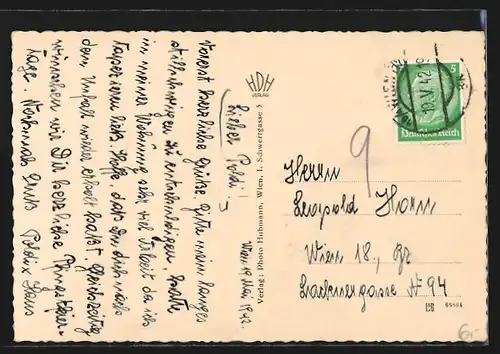 Wien 19. Mai 1942.
Lieber Poldi!
Vorerst herzliche Grüße. Bitte mein langes
Stillschweigen zu entschuldigen, hatte
in meiner Wohnung sehr viel Arbeit da ich
tapezieren ließ. Hoffe, daß Du dich nach
dem Unfall wieder erholt hast. Gleichzeitig
wünschen wir Dir herzliche Pfingstfeier-
tage. Nochmals Gruß Poldi u Hans
HDH
VERLAG
Verlag: Photo Hubmann, Wien, I. Schwertgasse 3
WIEN
19.V.42
5
Deutsches Reich
9
Herrn
Leopold Horn
Wien 18., Gz
Lacknergasse № 94
6.-